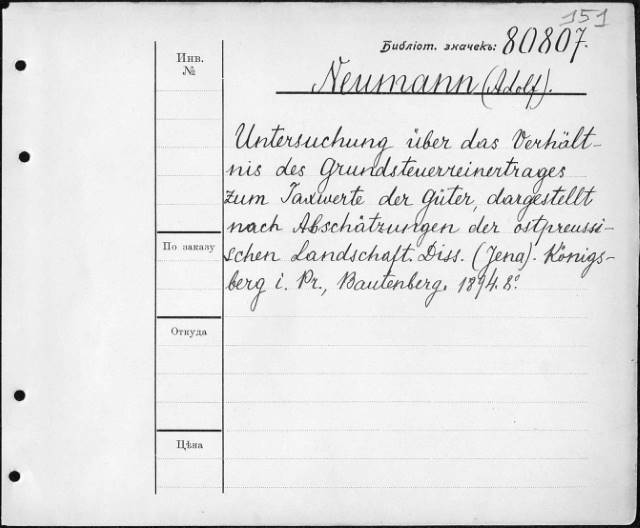 151
Библіот. значекъ: 80807.
Инв.
№
Neumann (Adolf).
Untersuchung über das Verhält-
nis des Grundsteuerreinertrages
zum Taxwerte der Güter, dargestellt
nach Abschätzungen der ostpreussi-
schen Landschaft. Diss. (Jena). Königs-
berg i. Pr., Bautenberg. 1894. 8°.
По заказу
Откуда
Цѣна